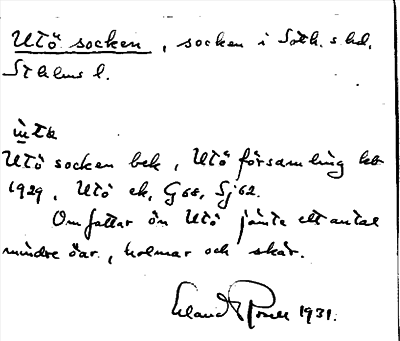 Utö socken, socken i Soth. s. hd,
Sthlms l.
ùtk
Utö socken bek, Utö församling kb
1929, Utö ek, G 68, Sj 62.
Omfattar ön Utö jämte ett antal
mindre öar, holmar och skär.
Erland Rosell 1931.